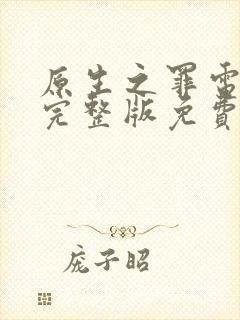 原生之罪雷
完整版免費
庞子昭